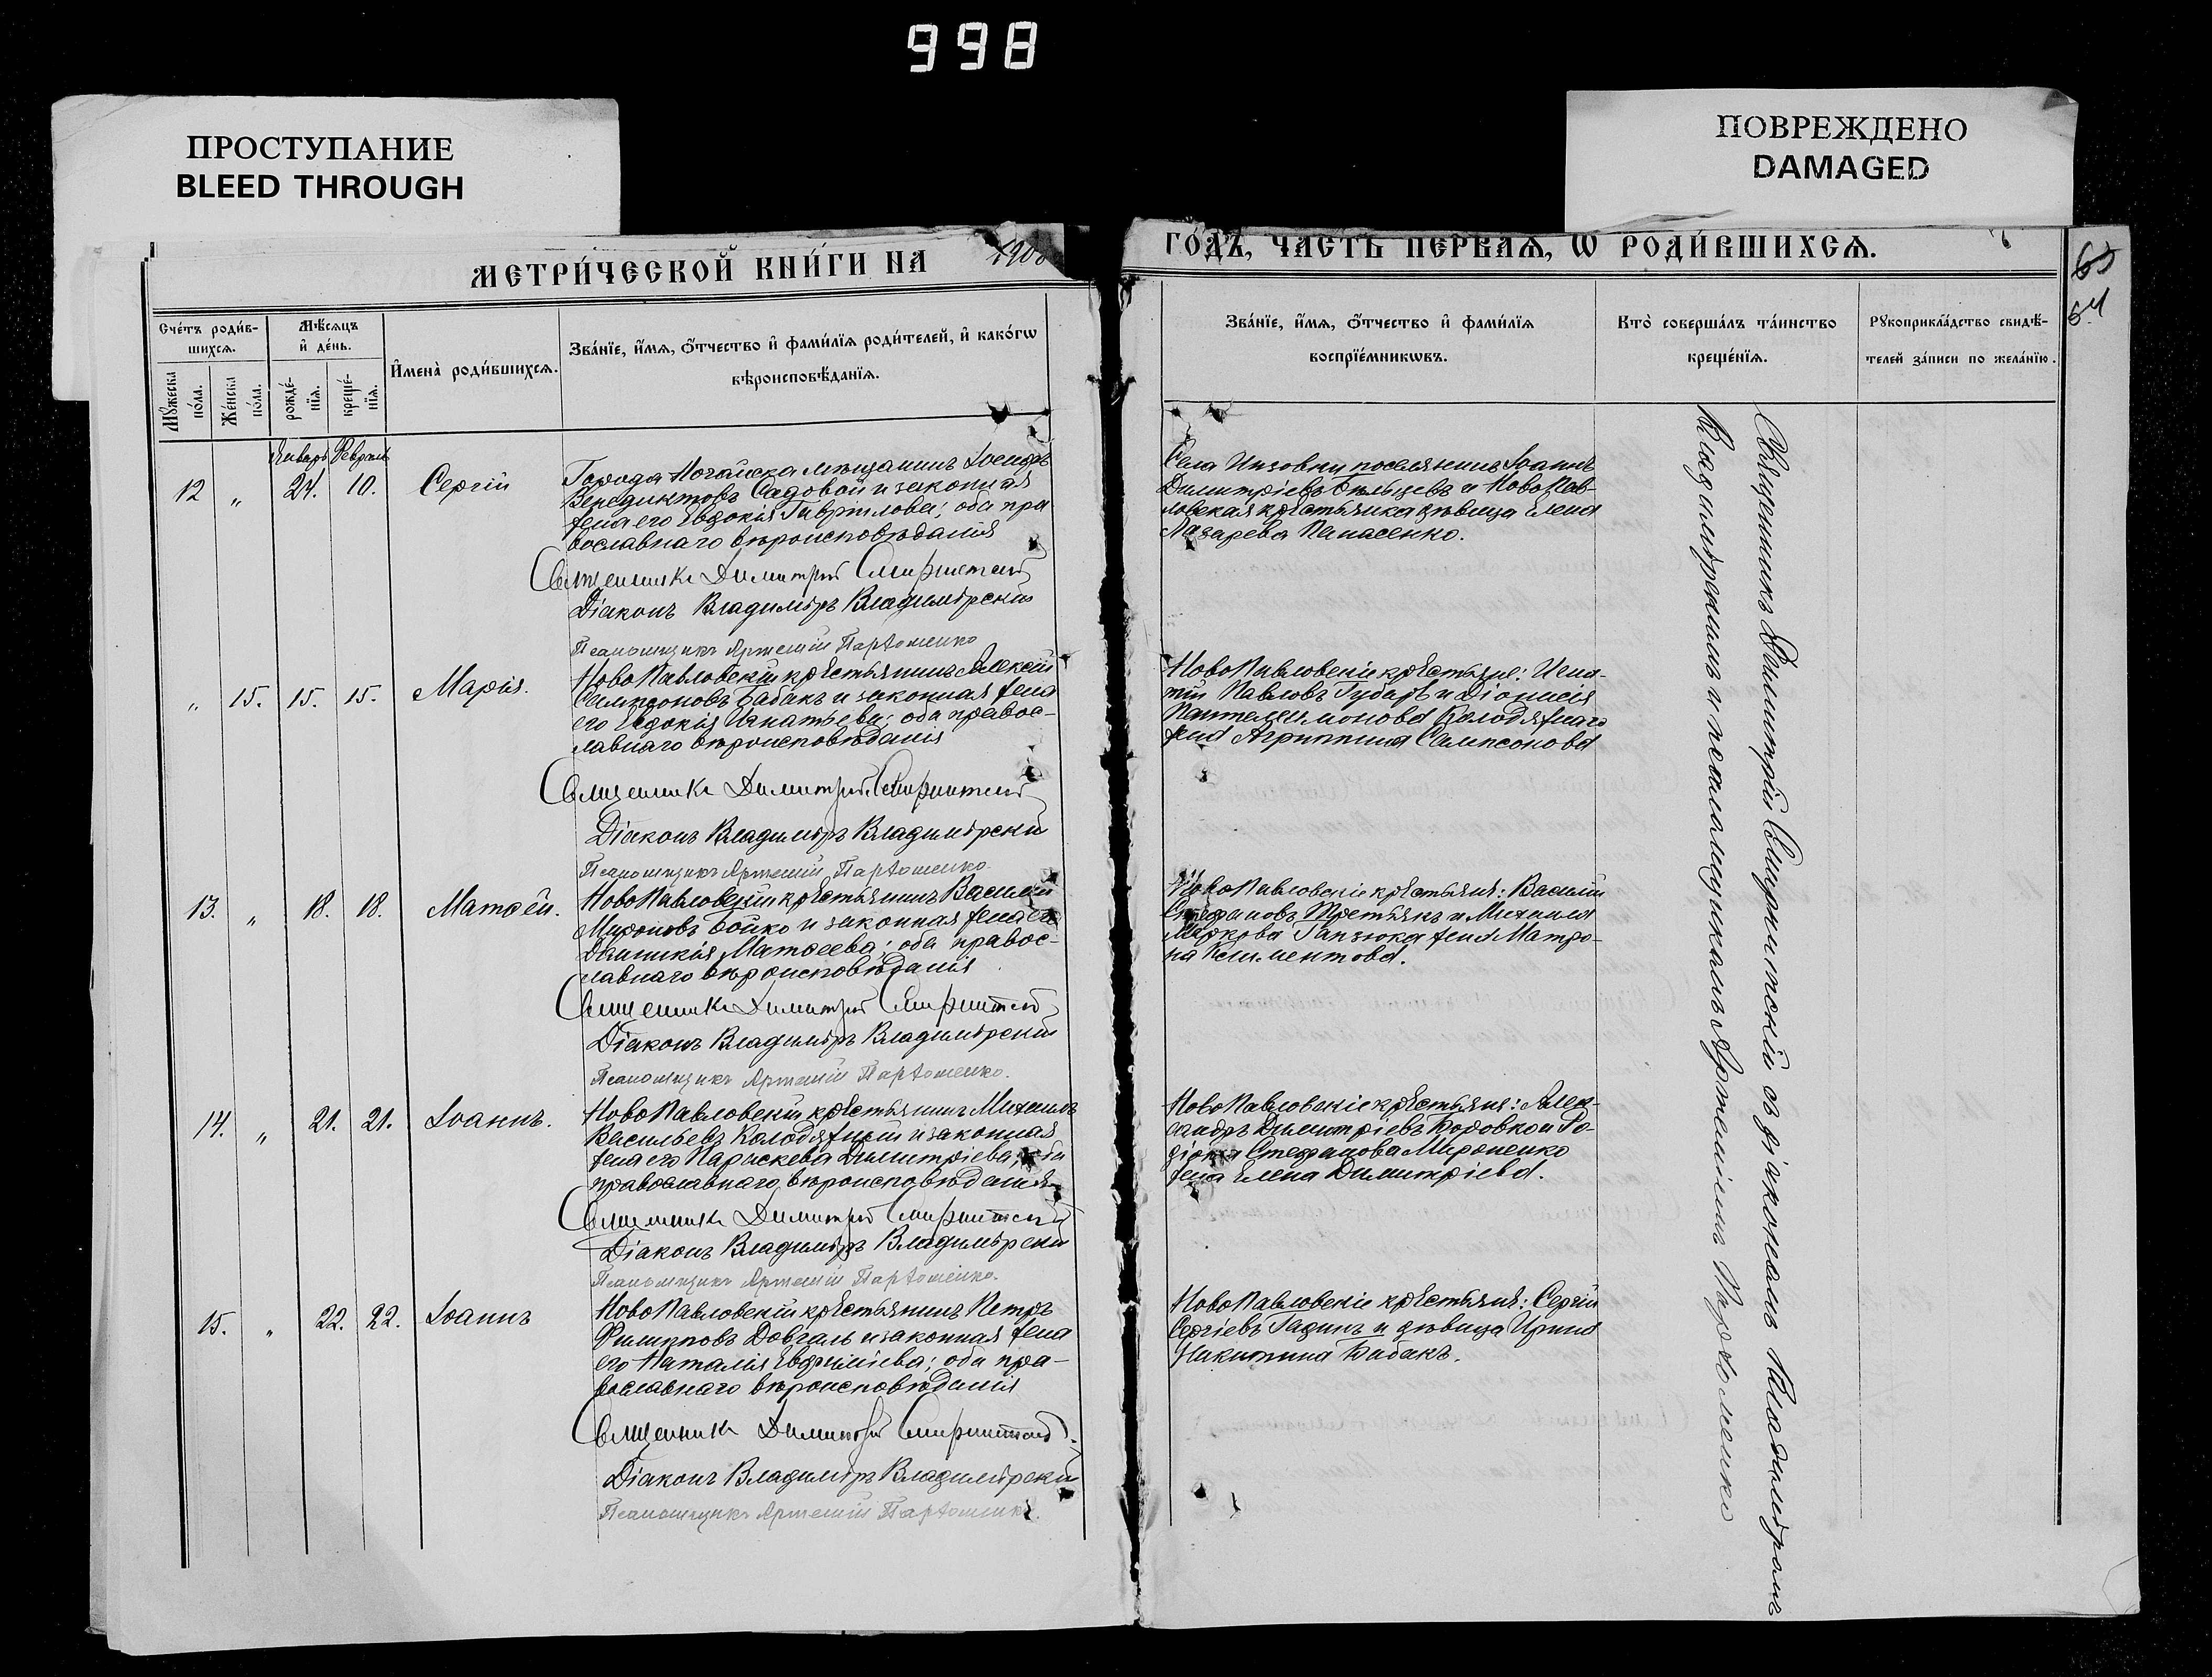 998
ПРОСТУПАНИЕ
BLEED THROUGH
ПОВРЕЖДЕНО
DAMAGED
МЕТРИ́ЧЕСКОЙ КНИ́ГИ НА
ГО́ДЪ, ЧАСТЬ ПЕРВАѦ, Ѡ РОДИ́ВШИХСѦ.
64
Сче́тъ роди́в-
шихсѧ.
Мѣ́сѧцъ
и҆ де́нь.
И҆мена̀ роди́вшихсѧ.
Зва́нїе, и҆́мѧ, ѻ҆́тчество и҆ фами́лїѧ роди́телей, и҆ како́гѡ
вѣроисповѣ́данїѧ.
Мꙋ́жеска
по́ла.
Же́нска
по́ла.
рожде́-
нїѧ.
креще́-
нїѧ.
Зва́нїе, и҆́мѧ, ѻ҆́тчество и҆ фами́лїѧ
воспрїе́мникѡвъ.
Кто̀ соверша́лъ та́инство
креще́нїѧ.
Рꙋкоприкла́дство свидѣ́-
телей за́писи по жела́нїю.
Январь Февраль
12 „ 24. 10. Сергій
Города Ногайска мѣщанинъ Іосифъ
Венедиктовъ Садовой и законная
жена его Евдокія Гаврилова; оба пра
вославнаго вѣроисповѣданія
Священникъ Димитрій Смирнитскій
Діаконъ Владиміръ Владимірскій
Псаломщикъ Артемій Пархоменко
Села Инзовки поселянинъ Іоаннъ
Димитріевъ Бѣльцевъ и НовоПав-
ловская крестьянка дѣвица Елена
Лазарева Панасенко.
„ 15. 15. 15. Марія.
НовоПавловскій крестьянинъ Алексій
Сампсоновъ Бабакъ и законная жена
его Евдокія Игнатьева; оба правос-
лавнаго вѣроисповѣданія
Священникъ Димитрій Смирнитскій
Діаконъ Владиміръ Владимірскій
Псаломщикъ Артемій Пархоменко
НовоПавловскіе крестьяне: Игна-
тій Павловъ Губарь и Діонисія
Пантелеимонова Колодяжнаго
жена Агриппина Сампсонова
13. „ 18. 18. Матѳей.
НовоПавловскій крестьянинъ Василій
Мироновъ Бойко и законная жена его
Домникія Матѳеева; оба правос-
лавнаго вѣроисповѣданія
Священникъ Димитрій Смирнитскій
Діаконъ Владиміръ Владимірскій
Псаломщикъ Артемій Пархоменко.
НовоПавловскіе крестьяне: Василій
Стефановъ Третьякъ и Михаила
Маркова Ганзюка жена Матро-
на Климентова.
14. „ 21. 21. Іоаннъ.
НовоПавловскій крестьянинъ Михаилъ
Васильевъ Колодяжный и законная
жена его Параскева Димитріева; оба
православнаго вѣроисповѣданія
Священникъ Димитрій Смирнитскій
Діаконъ Владиміръ Владимірскій
Псаломщикъ Артемій Пархоменко.
НовоПавловскіе крестьяне: Алек-
сандръ Димитріевъ Боровкои Ро-
діона Стефанова Мироненко
жена Елена Димитріева.
15. „ 22. 22. Іоаннъ
НовоПавловскій крестьянинъ Петръ
Филипповъ Довгаль и законная жена
его Наталія Евфиміева; оба пра-
вославнаго вѣроисповѣданія
Священникъ Димитрій Смирнитскій.
Діаконъ Владиміръ Владимірскій
Псаломщикъ Артемій Пархоменко.
НовоПавловскіе крестьяне: Сергій
Сергіевъ Гадинъ и дѣвица Ирина
Никитина Бабакъ.
Священникъ Димитрій Смирнитскій съ діакономъ Владиміромъ
Владимірскимъ и псаломщикомъ Артеміемъ Пархоменко